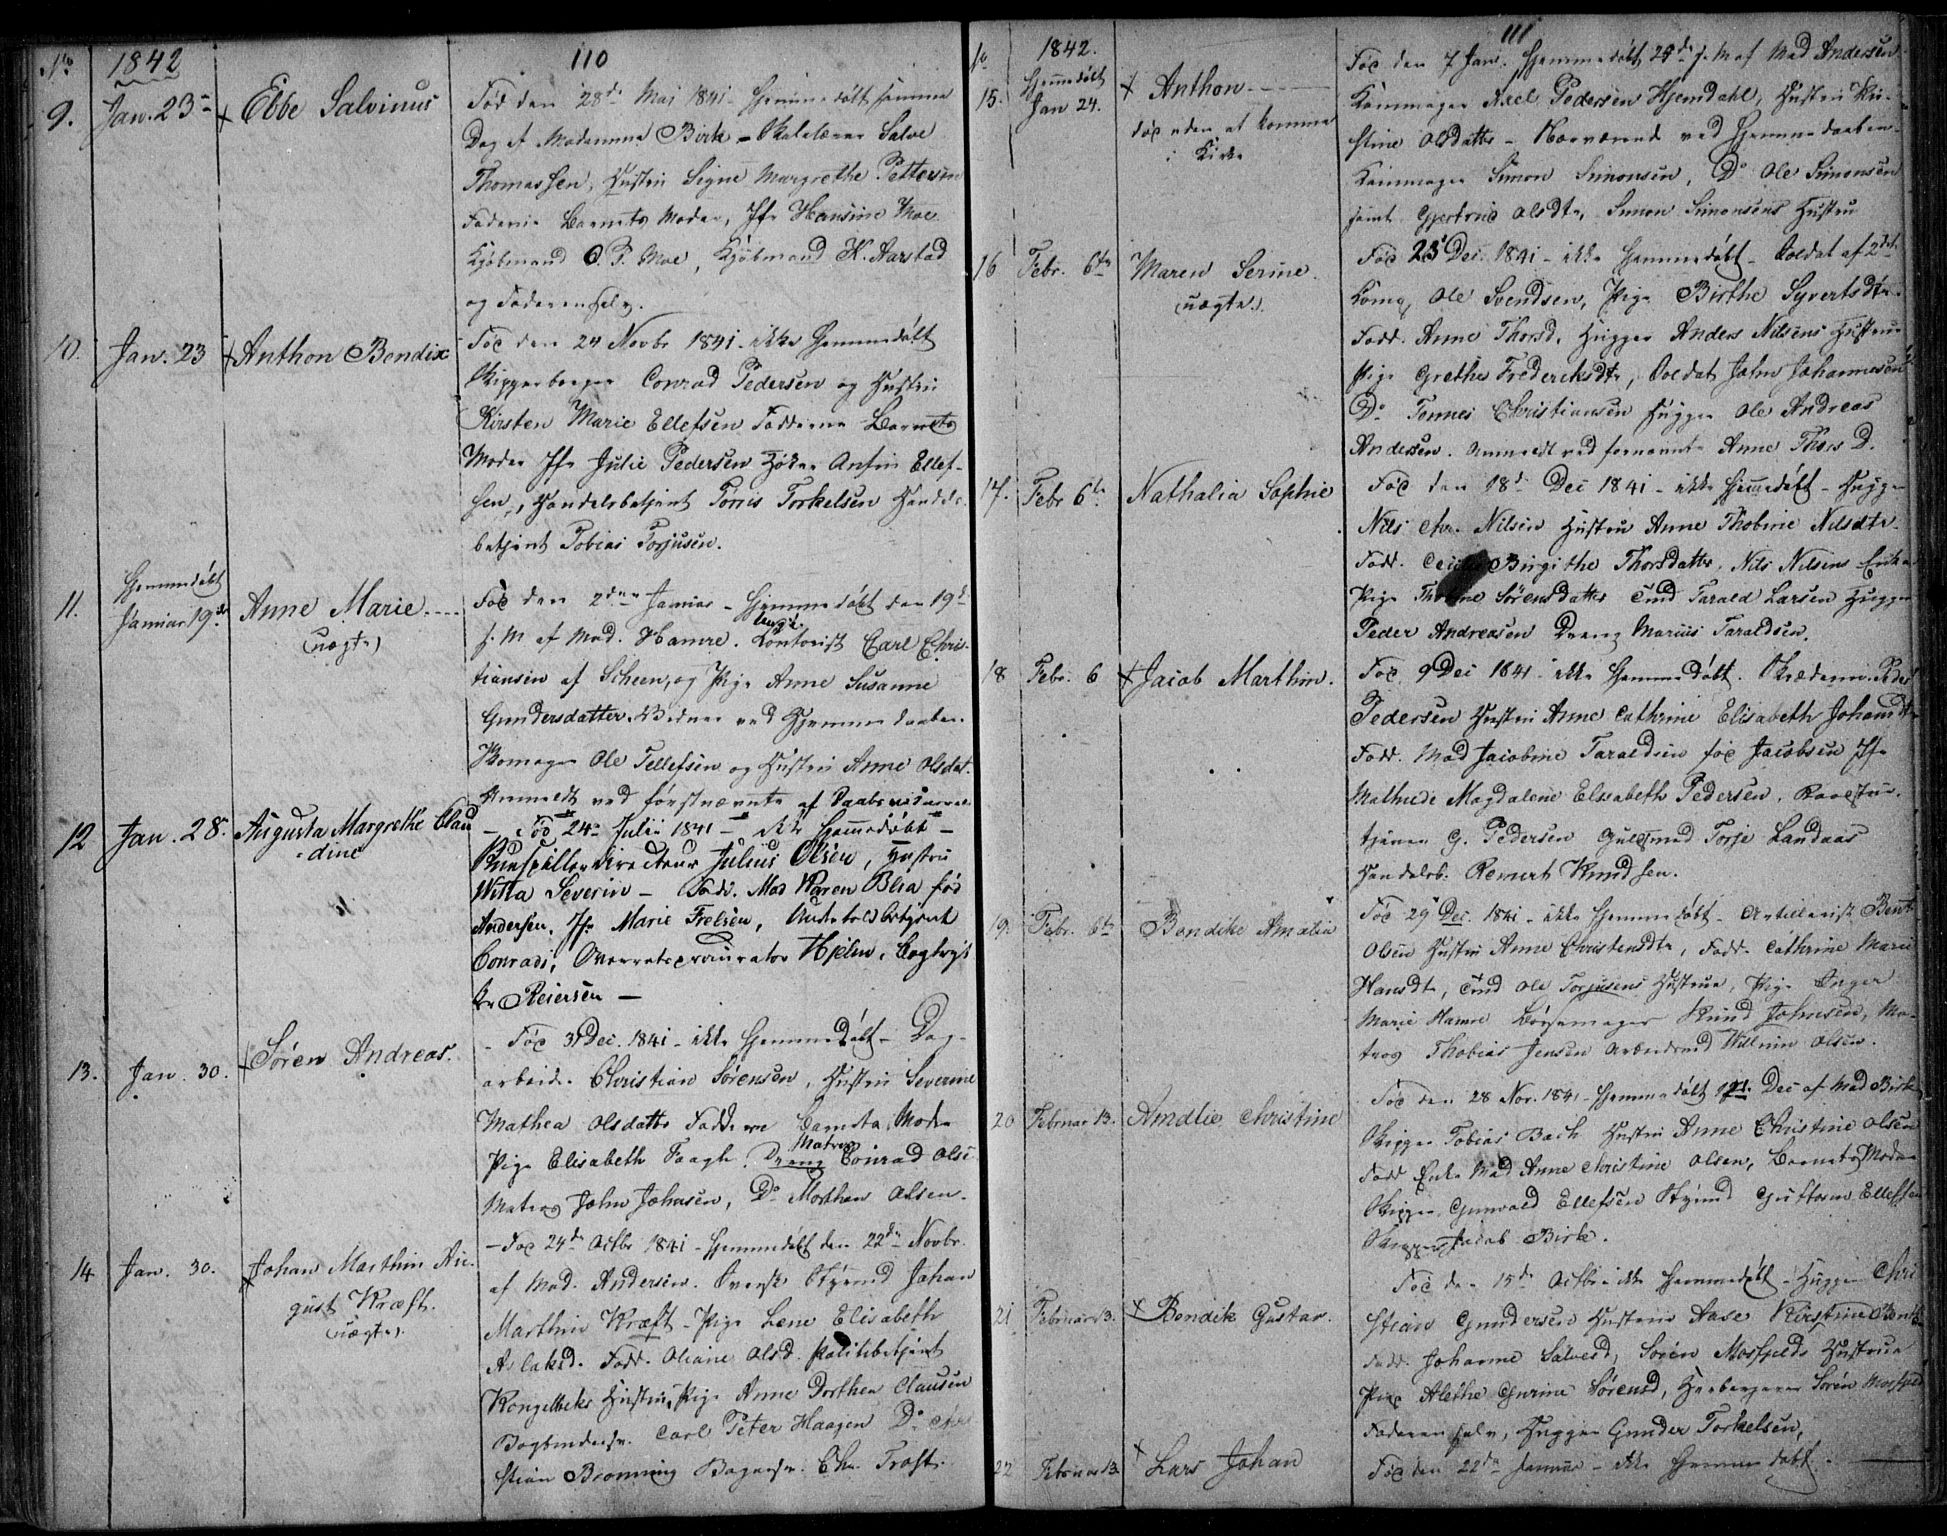 110
No 1842
9. Jan. 23 Ebbe Salvinus
Fød den 28de Mai 1841 - Hjemmedøbt samme
Dag af Madamme Birk - Skolelærer Salve
Thomassen, Hustru Signe Margrethe Pettersen
Fadderne Barnets Moder, Jfr Hansine Moe
Kjøbmand O. P. Moe, Kjøbmand K. Aarstad
og Faderen selv.
10. Jan. 23 Anthon Bendix
Fød den 24 Novbr 1841 - ikke Hjemmedøbt
Skipperborger Conrad Pedersen og Hustru
Kirsten Marie Ellefsen Fadderne Barnets
Moder Jfr Julie Pedersen Ellef-
sen, Handelsbetjent Torkelsen Handels-
betjent Tobias Torjusen.
11. Hjemmedøbt
Januar 19de Anne Marie
(uægte)
Fød den 2den Januar - Hjemmedøbt den 19de
s. M af Mad. Hamre. Kontorist Carl Chris-
tiansen af Scheen, og Pige Anne Susanne
Gundersdatter. Vidner ved Hjemmedaaben
Skomager Ole Tellefsen og Hustru Anne Olsdat.
Anmeldt ved førstnævnte af
12 Jan. 28. Augusta Margrethe Clau
dine
- Fød 24 Julii 1841 - ikke Hjemmedøbt -
Directeur Julius Olsen, Hustru
Witta Severin - Fadd. Mad Karen Blia fød
Andersen, Jfr Marie Frelsen,
Conradi, Overretsprocurator Hjelm, Bogtryk
ker Reiersen -
13. Jan. 30. Søren Andreas.
- Fød 31 Dec. 1841 - ikke Hjemmedøbt - Dag-
arbeider Christian Sørensen, Hustru Severine
Mathea Olsdatter Fadderne Barnets Moder
Matros
Pige Elisabeth Faagh. Dreng Conrad Olse
Matros John Johnsen, Do Morthen Olsen.
14 Jan. 30. Johan Marthin Au-
gust Kræft.
(uægte).
- Fød 24de Octbr 1841 - Hjemmedøbt den 22de Novbr.
af Mad. Andersen. Svensk Styrmd Johan
Marthin Kræft - Pige Lene Elisabeth
Aslaksd. Fadd. Oliane Olsd. Politibetjent
Kongelbeks Hustru, Pige Anne Dorthea Clausen
Bogbindersv. Carl Peter Haagen Do Chri
stian Brønning Bagersv. Chr. Trost.
111
No 1842.
15. Hjemmedøbt
Jan 24. Anthon
død uden at komme
i Kirke
Fød den 7 Jan. Hjemmedøbt 24de s. M af Mad Andersen
Axel Pedersen Hjemdahl, Hustru Kir-
stine Olsdatter - Nærværende ved Hjemmedaaben
Simon Simonsen, Do Ole Simonsen
samt Gjertrud Olsdtr, Simon Simonsens Hustru
16 Febr. 6te Maren Serine
(uægte).
Fød 23 Dec. 1841 - ikke Hjemmedøbt - Soldat af 2det
Komp. Ole Svendsen, Pige Birthe Syvertsdtr.
Fadd. Anne Thorsd, Hugger Anders Nilsens Hustru
Pige Grethe Frederiksdtr, Soldat John Johannesen
Do Tønnes Christiansen Hugger Ole Andreas
Andersen. Anmeldt ved fornævnte Anne Thors D.
17. Febr 6te Nathalia Sophie
Fød den 18de Dec 1841 - ikke Hjemmedøbt - Hugger
Nils Chr. Nilsen Hustru Anne Thobine Nilsdtr.
Fadd. Birgithe Thorsdatter, Nils Nilsens Enke
Pige Sørensdatter Tarald Larsen Hugger
Peder Andreasen Dreng Marius Taraldsen.
18 Febr. 6 Jacob Marthin.
Fød 9 Dec 1841 - ikke Hjemmedøbt. Skræderm. Peder
Pedersen Hustru Anne Cathrine Elisabeth Johansdtr
Fadd. Mad Jacobine Taraldsen fød Jacobsen Jfr
Mathilde Magdalene Elisabeth Pedersen,
tjener G. Pedersen Guldsmed Torje Landaas
Handelsb. Reinert Knudsen.
19. Febr. 6te Bendikte Amalia
Fød 29 Dec. 1841 - ikke Hjemmedøbt - Artillerist Bent
Olsen Hustru Anne Christensdtr, Fadd. Cathrine Marie
Hansdtr, Ole Torjusens Hustrue, Pige Inger
Marie Hamre Børsemager Knud Johnsen, Ma-
tros Thobias Jensen Arbeidsmd Willum Olsen.
20 Februar 13. Amalie Christine
Fød den 28 Nov. 1841 - Hjemmedøbt Dec af Mad Birk
Skipper Tobias Bach Hustru Anne Christine Olsen
Fadd Enke Mad Anne Christine Olsen, Barnets Moder
Skipper Gunvald Ellefsen Styrmd Ellefsen
Skipper Jacob Birk.
21 Februar 13. Bendik Gustav.
Fød den 15de Octbr ikke Hjemmedøbt - Hugger Chri
stian Gundersen Hustrue Aase Kirstine Bent
Fadd. Johanne Salvesd, Søren Mosfjelds Hustrue
Pige Alethe Gurine Sørensd, Søren Mosfjeld
Faderen selv, Hugger Gunder Torkelsen,
22 Februar 13. Lars Johan
Fød den 22de Januar - ikke Hjemmedøbt.